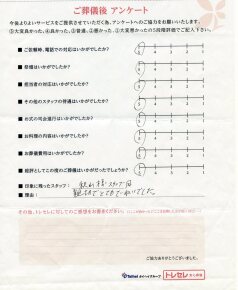 ご葬儀後 アンケート
今後よりよいサービスをご提供させていただく為、アンケートへのご協力をお願いいたします。
⑤大変良かった、④良かった、③普通、②悪かった、①大変悪かったの5段階評価でご記入下さい。
■ご依頼時、電話での対応はいかがでしたか?
5 4 3 2 1
■祭壇はいかがでしたか?
5 4 3 2 1
■担当者の対応はいかがでしたか?
5 4 3 2 1
■その他のスタッフの普通はいかがでしたか?
5 4 3 2 1
■お式の司会進行はいかがでしたか?
5 4 3 2 1
■お料理の内容はいかがでしたか?
5 4 3 2 1
■お葬儀費用はいかがでしたか?
5 4 3 2 1
■総評としてこの度のご葬儀はいかがだったでしょうか?
5 4 3 2 1
■印象に残ったスタッフ:
■理由:
その他、トレセレに対してのご感想をお書きください。
ご協力ありがとうございました。
トレセレ